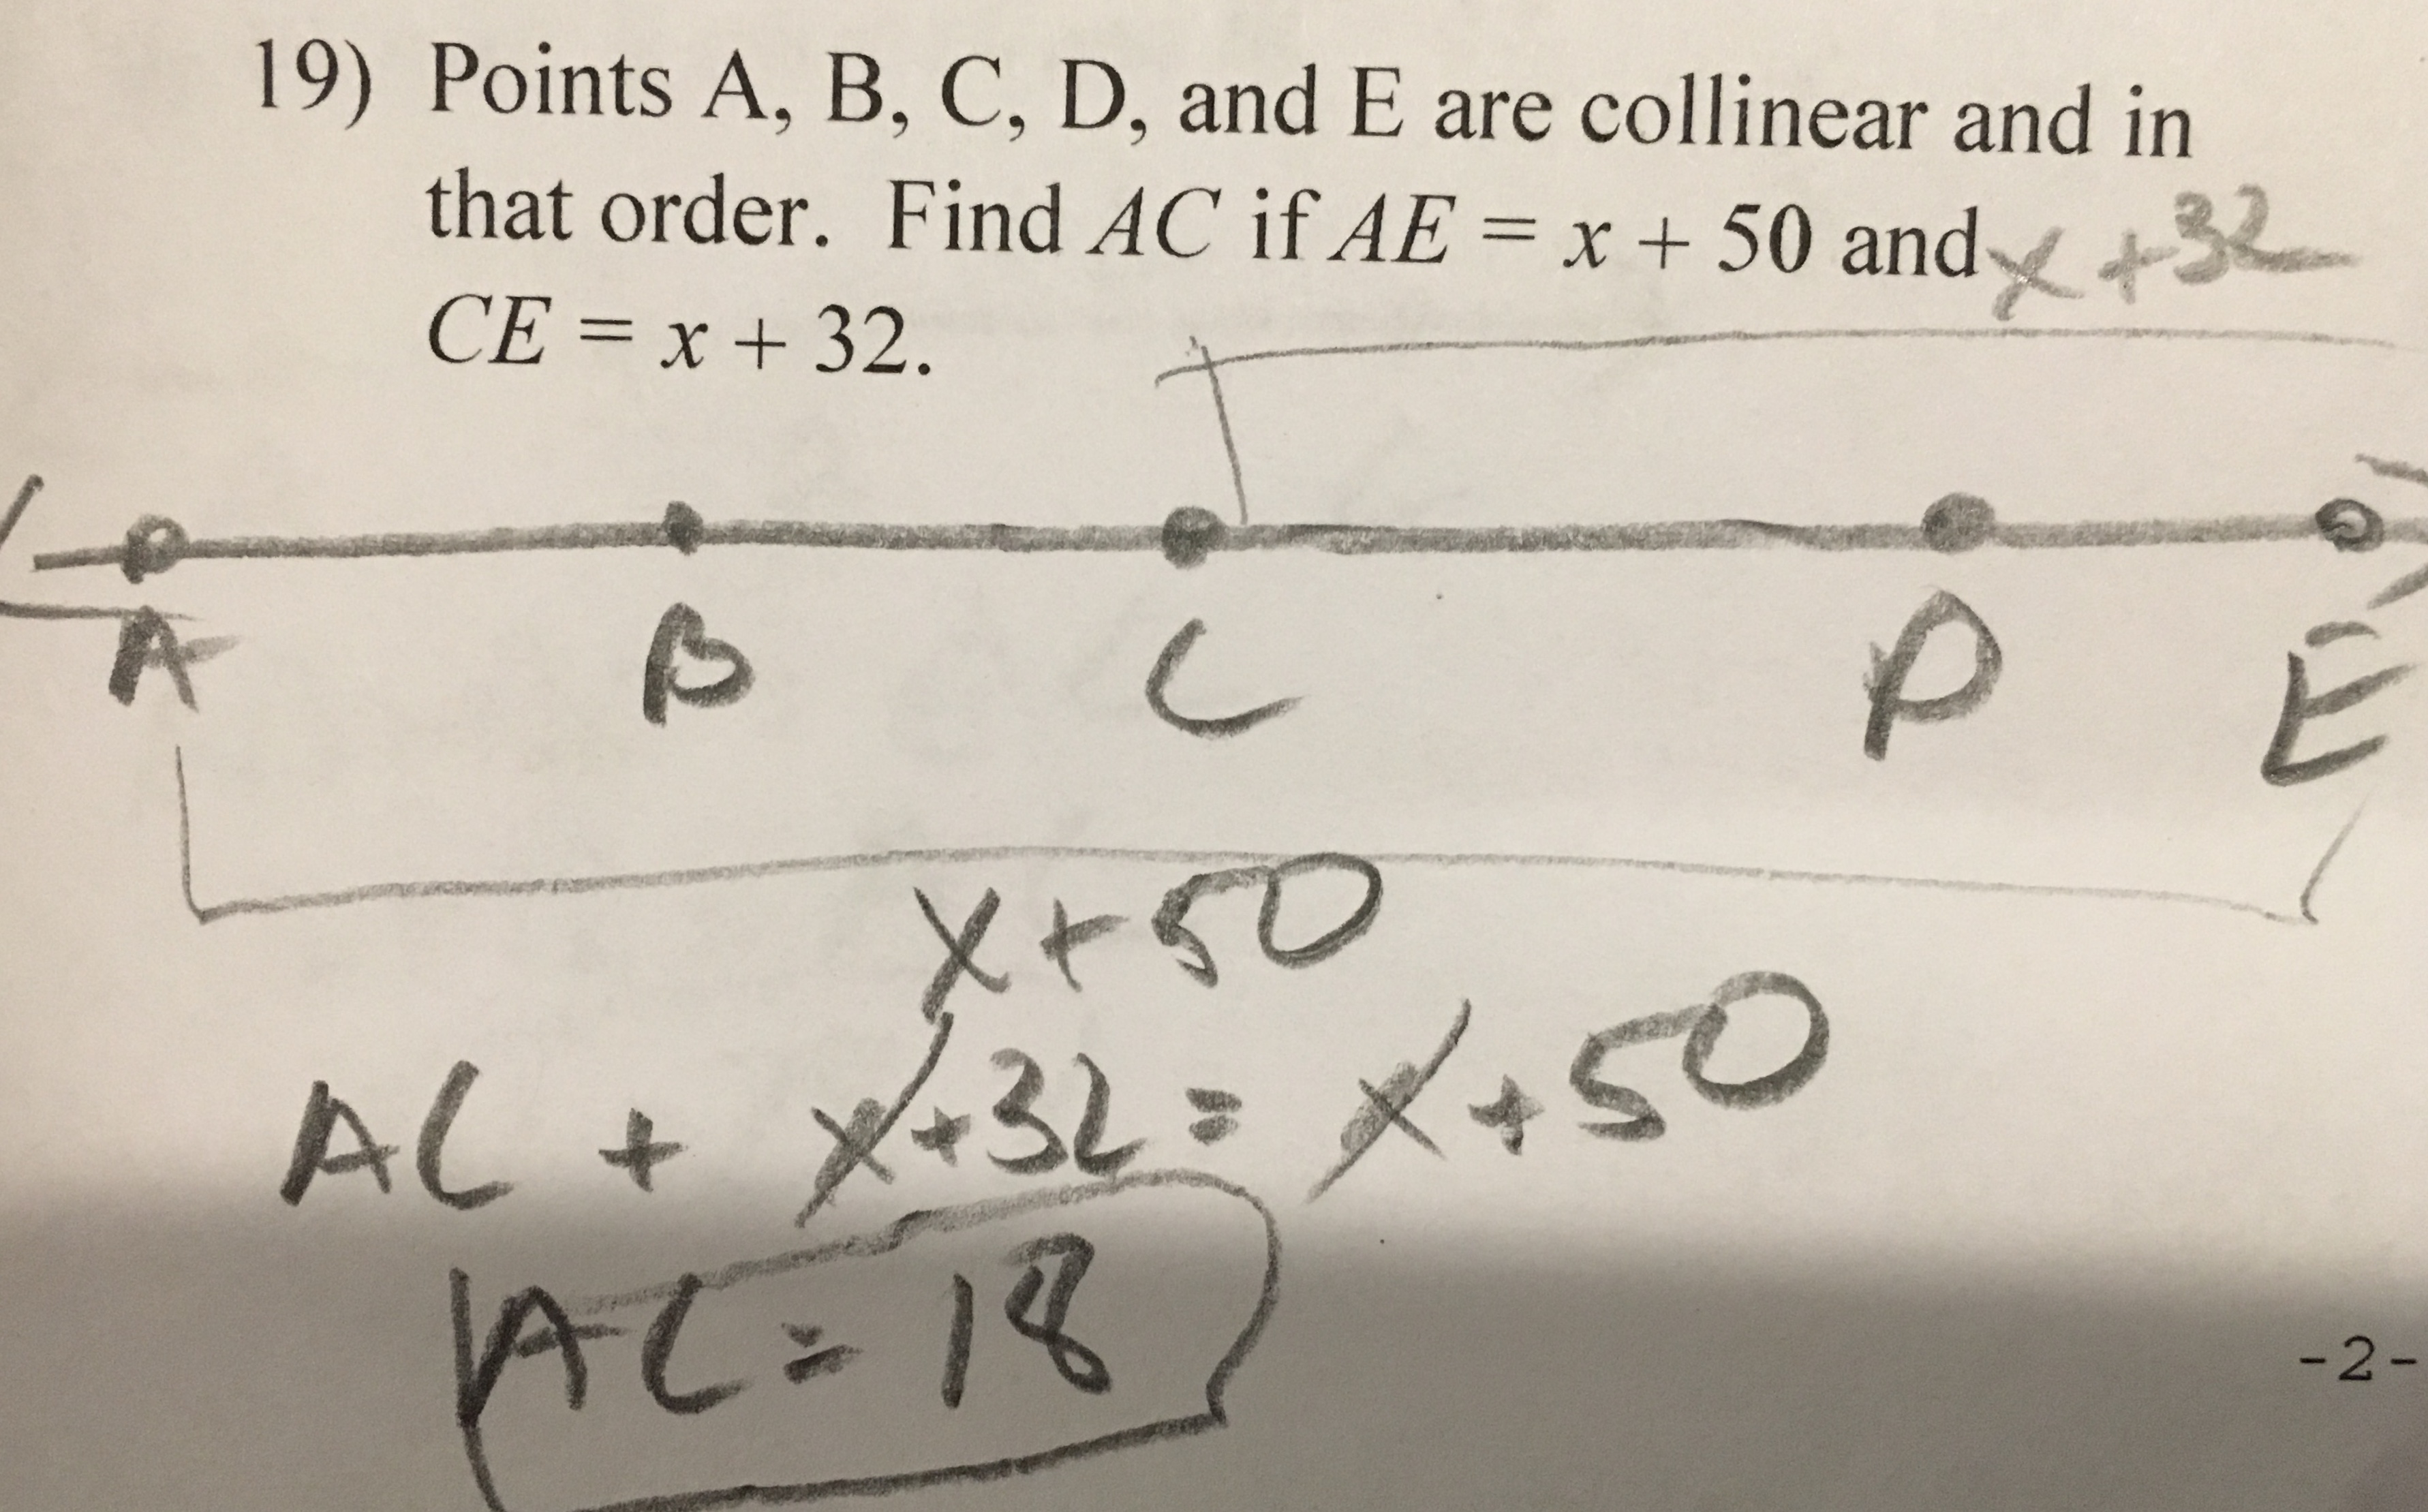 19) Points A, B, C, D, and E are collinear and in
that order. Find AC if AE = x + 50 and
x + 32
CE = x + 32.
A B C D E
x + 50
AC + x + 32 = x + 50
AC = 18
-2-